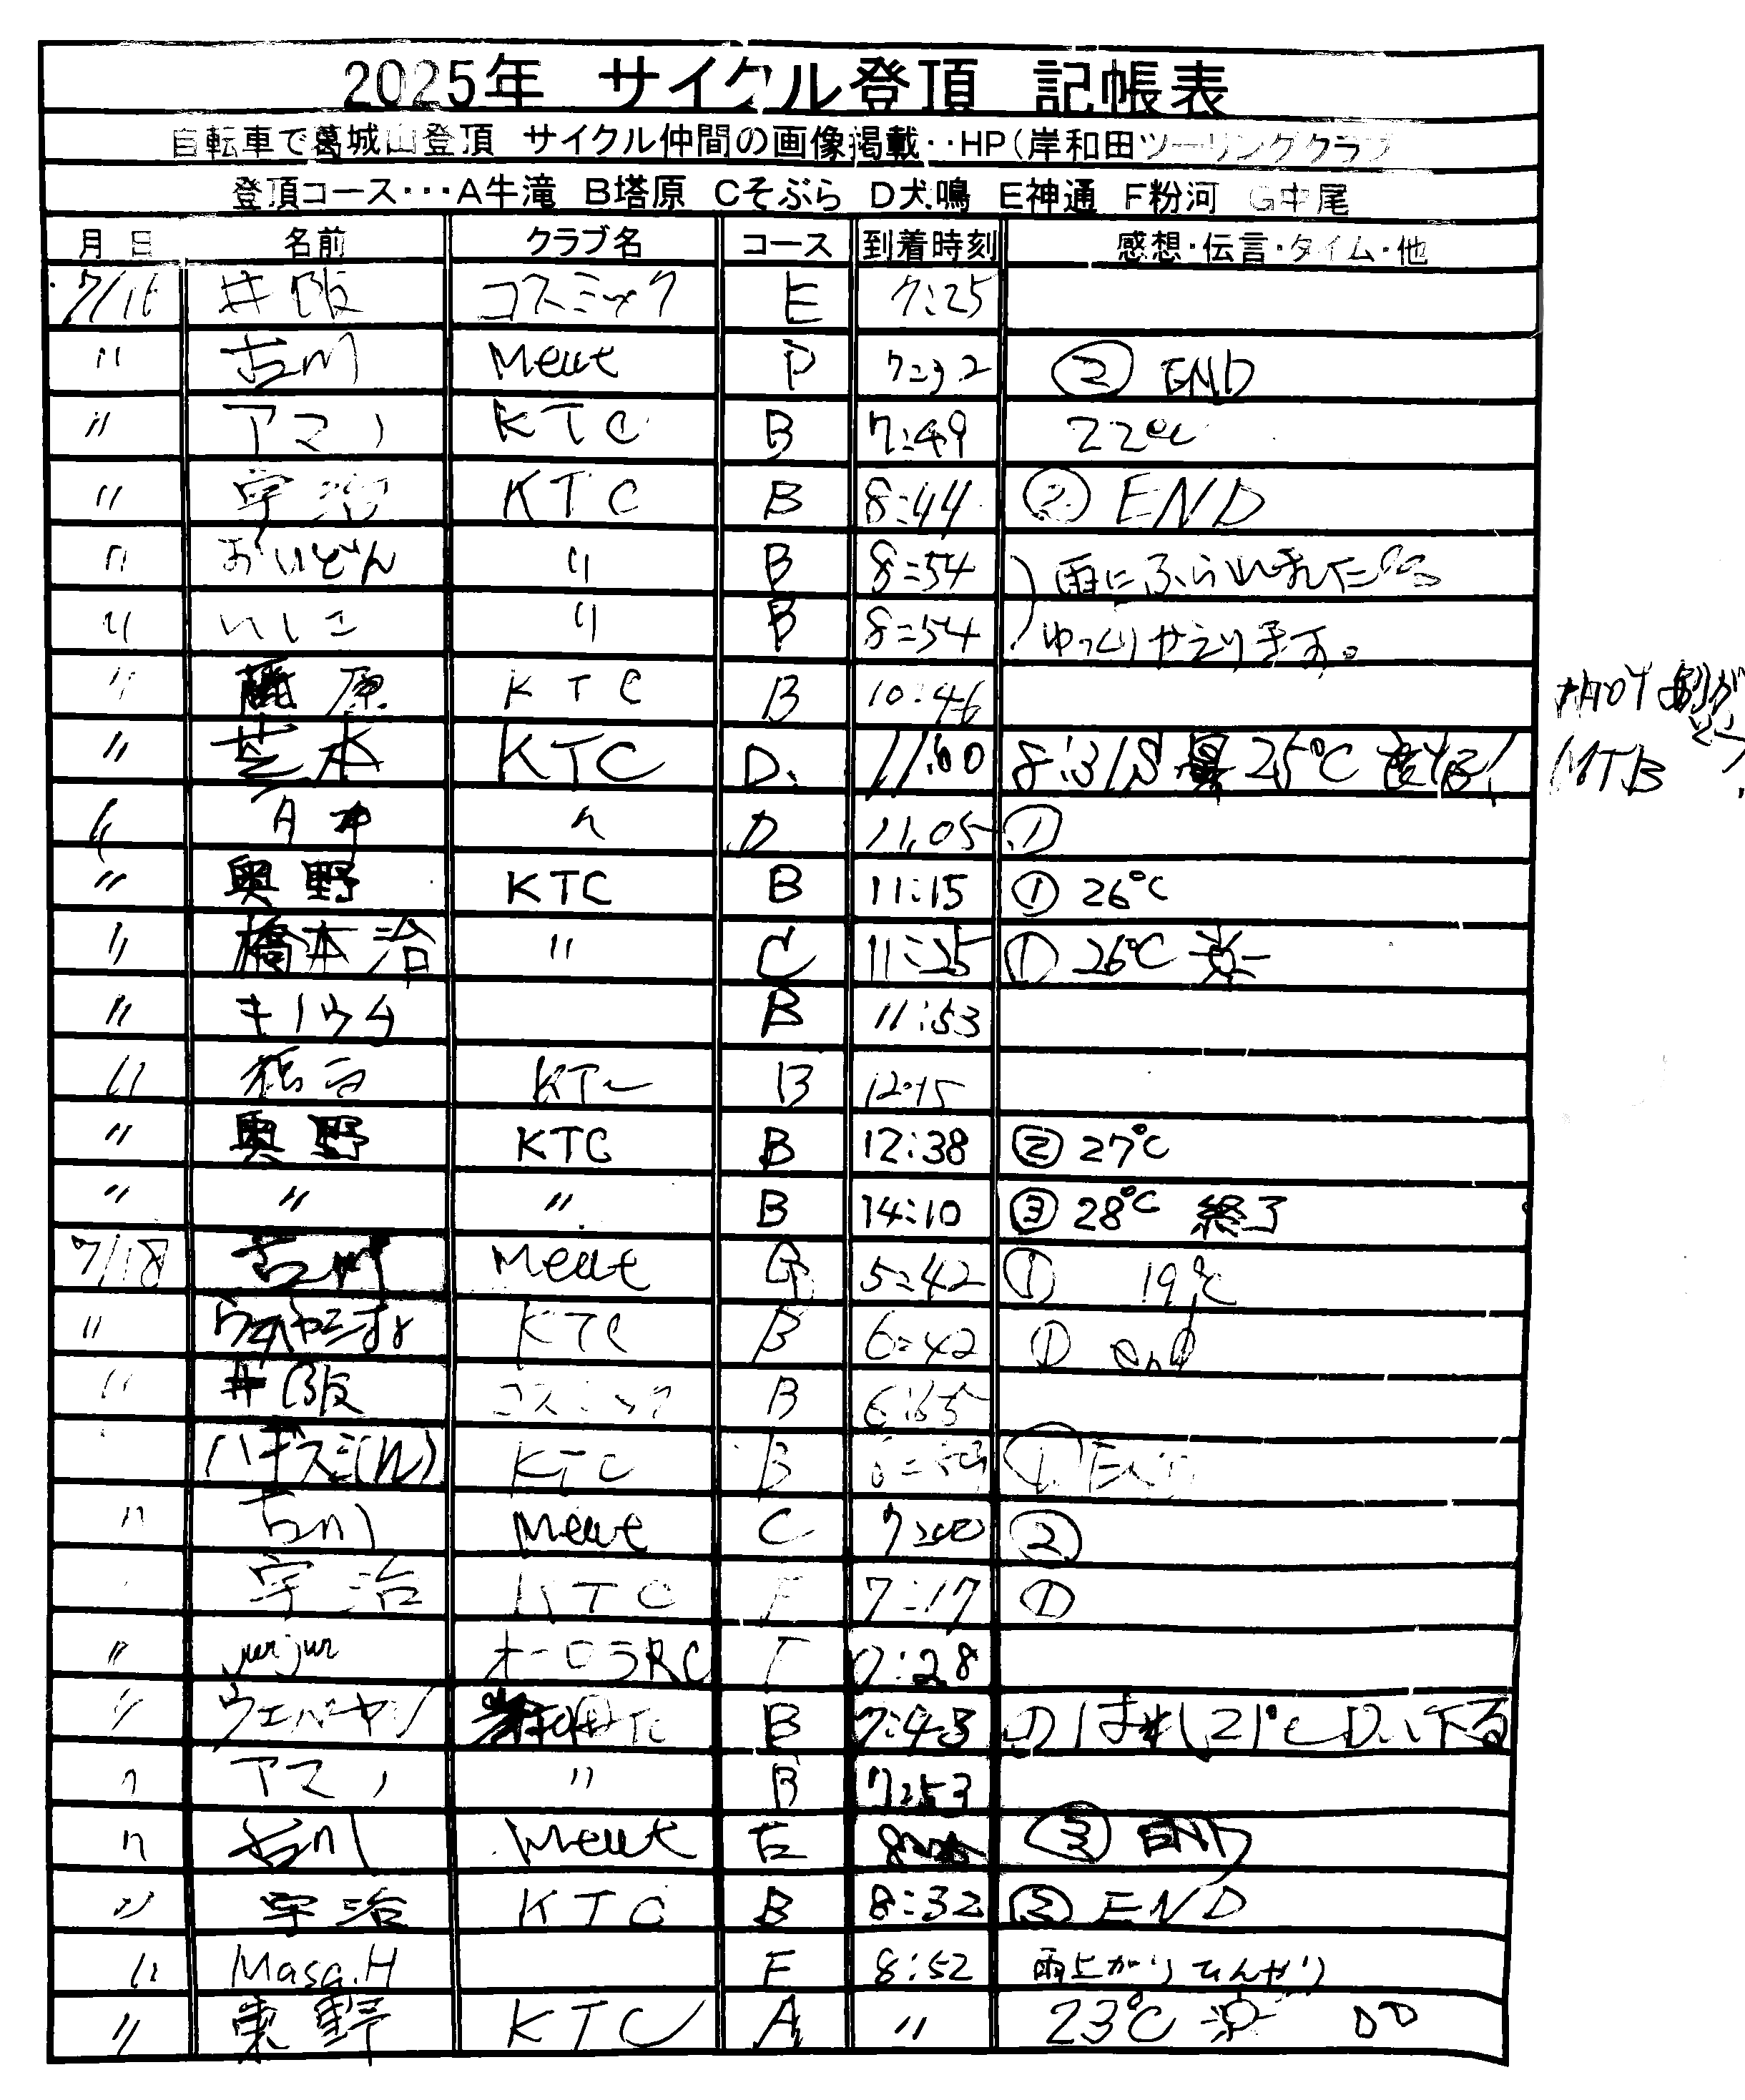 2025年 サイクル登頂 記帳表
自転車で葛城山登頂 サイクル仲間の画像掲載‥HP(岸和田ツーリングクラブ
登頂コース･･･A牛滝 B塔原 Cそぶら D犬鳴 E神通 F粉河 G中尾
月 日 名前 クラブ名 コース 到着時刻 感想・伝言・タイム・他
7/16 井阪 コスミック E 7:25
〃 古川 Meut P 7:32 ② END
〃 アマノ KTC B 7:49 22℃
〃 宇治 KTC B 8:44 ② END
〃 おいどん 〃 B 8:54 雨にふられました
〃 いしこ 〃 B 8:54 ゆっくりかえります。
〃 藤原 KTC B 10:46
〃 芝本 KTC D. 11:00 25℃ MTB
〃 D 11:05 ①
〃 奥野 KTC B 11:15 ① 26℃
〃 橋本治 〃 C 11:25 ① 26℃
〃 キノウチ B 11:53
〃 B 12:15
〃 奥野 KTC B 12:38 ② 27℃
〃 〃 〃 B 14:10 ③ 28℃ 終了
7/18 古川 Meut G 5:42 ① 19℃
〃 KTC B 6:42 ① end
〃 井阪 コスミック B 6:55
ハギズミ(ル) KTC B ①
〃 古川 Meut C 7:00 ②
宇治 KTC 7:17 ①
〃 junjun オーロラRC 7:28
〃 ウエバヤシ 岸和田TC B 7:43 はれ 21℃ 下る
〃 アマノ 〃 B 7:53
〃 古川 Meut E ③ END
〃 宇治 KTC B 8:32 ② END
〃 Masa.H F 8:52 雨上がり ひんやり
〃 東野 KTC A 〃 23℃